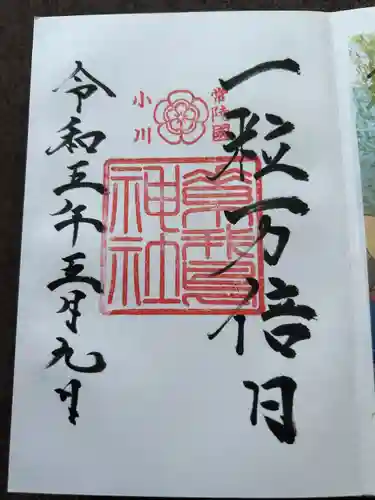 一粒万倍日
常陸國
小川
素鵞
神社
令和五年五月九日